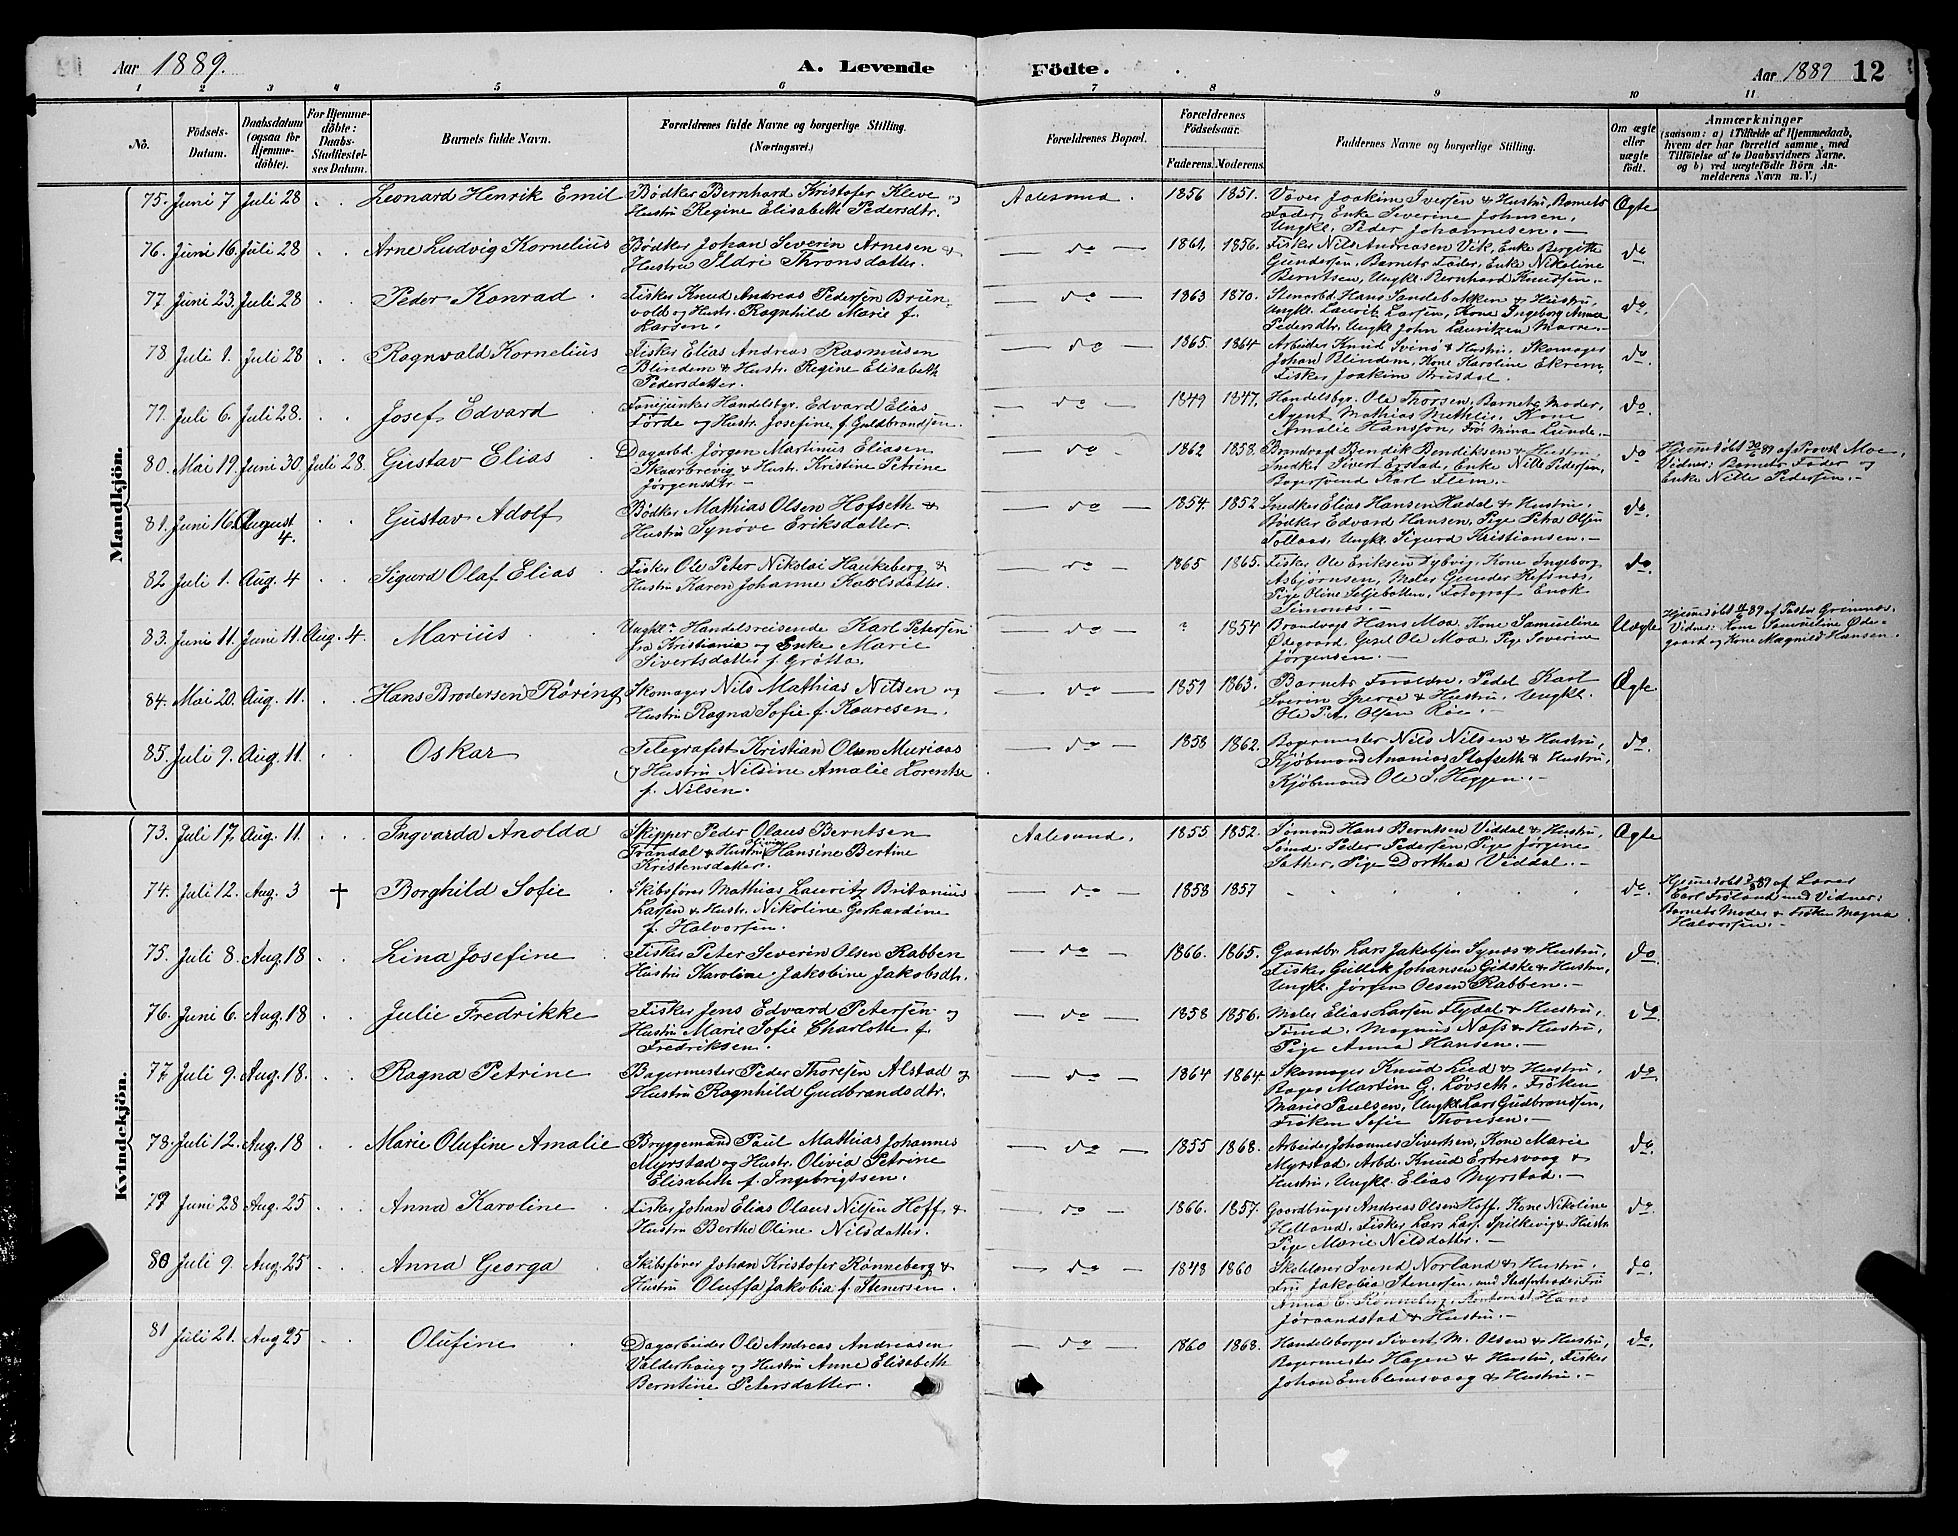 Aar 1889.
A. Levende Födte.
Aar 1889 12
1 2 3 4 5 6 7 8 9 10 11
No.
Födsels-
Datum.
Daabsdatum
(ogsaa for
Hjemme-
döbte).
For Hjemme-
döbte:
Daabs-
Stadfæstel-
ses Datum.
Barnets fulde Navn.
Forældrenes fulde Navne og borgerlige Stilling.
(Næringsvei.)
Forældrenes Bopæl.
Forældrenes
Födselsaar.
Faderens. Moderens.
Faddernes Navne og borgerlige Stilling.
Om ægte
eller
uægte
födt.
Anmærkninger
(saasom: a) i Tilfælde af Hjemmedaab,
hvem der har forrettet samme, med
Tilföielse af to Daabsvidners Navne,
og b) ved uægtefödte Börn An-
melderens Navn m. V.)
Mandkjön.
75. Juni 7 Juli 28 Leonard Henrik Emil
Bødker Bernhard Kristofer Kleve og
Hustru Regine Elisabeth Pedersdtr.
Aalesund. 1856 1851.
Væver Joakim Iversen & Hustru, Barnets
Fader, Enke Severine Johnsen,
Ungkl. Peder Johannesen.—
Ægte
76. Juni 16. Juli 28 Arne Ludvig Kornelius
Bødker Johan Severin Arnesen &
Hustru Ildri Thronsdatter.
— do — 1861. 1856.
Fisker Nils Andreasen Vik, Enke Bergitte
Gundersen, Barnets Fader, Enke Nikoline
Berntsen, Ungkl. Bernhard Knudsen.—
do
77 Juni 23. Juli 28 Peder Konrad
Fisker Knud Andreas Pedersen Brun-
vold og Hustr. Ragnhild Marie f.
Larsen.
— do — 1863 1870.
Stenarbd. Hans Sandebakken & Hustru,
Ungkl. Laurits Larsen, Kone Ingeborg Anna
Pedersdtr. Ungkl. John Lauritzen Marre.—
do.
78 Juli 1. Juli 28 Ragnvald Kornelius
Fisker Elias Andreas Rasmusen
Blindem & Hustr. Regine Elisabeth
Pedersdatter.
— do — 1865. 1864
Arbeider Knud Svinø & Hustru, Skomager
Johan Blindem, Kone Karoline Ekrem,
Fisker Joakim Brusdal.
do.
79. Juli 6. Juli 28. Josef Edvard
Fanejunker Handelsbgr. Edvard Elias
Førde og Hustr. Josefine f. Guldbrandsen.
— do — 1849 1847.
Handelsbgr. Ole Thorsen, Barnets Moder,
Agent Mathias Methlie, Kone
Amalie Hansson, Frk Mina Lunde.—
do.
80. Mai 19. Juni 30. Juli 28. Gustav Elias
Dagarbd. Jørgen Martinus Eliasen
Skuartrevig & Hustr. Kristine Petrine
Jørgensdtr.—
— do — 1862 1858.
Brandvagt Bendik Bendiksen & Hustru
Snedker Sivert Erstad, Enke Nille Pedersen,
Bagersvend Karl Flem.—
do
Hjemmedøbt 30/6 89 af Provst Moe,
Vidner: Barnets Fader og
Enke Nille Pedersen.—
81. Juni 16. August 4. Gustav Adolf
Bødker Mathias Olsen Hofseth &
Hustru Synøve Eriksdatter.
— do — 1854. 1852
Snedker Elias Hansen Haddal & Hustru,
Bødker Edvard Hansen, Pige Petra Olsen
Tollaas, Ungkl. Sigurd Kristiansen.—
do.
82 Juli 1. Aug. 4 Sigurd Olaf Elias
Fisker Ole Peter Nikolai Haukeberg &
Hustru Karen Johanne Karlsdatter.
— do — 1865 1865.
Fisker Ole Eriksen Dybvig, Kone Ingeborg
Asbjørnsen, Maler Gunder Refsnæs,
Pige Oline Seljebotten, Fotograf Enok
Simonæs.—
do.
83. Juni 11. Juni 11. Aug. 4. Marius
Ungkl. Handelsreisende Karl Petersen
fra Kristiania og Enke Marie
Sivertsdatter f. Grøtta.
— do — ? 1854
Brandvagt Hans Moa, Kone Samueline
Ødegaard, Gesel Ole Moa, Pige Severine
Jørgensen.—
Uægte
Hjemmedøbt 11/6 89 af Pastor Grimnæs.
Vidner: Kone Samueline Øde-
gaard og Kone Magnild Hansen.
84. Mai 20. Aug. 11. Hans Brodersen Røring
Skomager Nils Mathias Nilsen og
Hustru Ragna Sofie f. Kaaresen.
— do — 1859 1863.
Barnets Forældre, Pedel Karl
Severin Sperre & Hustru, Ungkl.
Ole P. A. Olsen Roe.—
Ægte
85. Juli 9. Aug. 11. Oskar
Telegrafist Kristian Olsen Muriaas
og Hustru Nilsine Amalie Lorentze
f. Nilsen.
— do — 1858 1862.
Bagermester Nils Nilsen & Hustru,
Kjøbmand Ananias Slafseth & Hustru,
Kjøbmand Ole S. Heggen.—
do.
Kvindekjön.
73. Juli 17. Aug. 11 Ingvarda Anolda
Skipper Peder Olaus Berntsen
Trandal & Hustru Olivia Hansine Bertine
Kristensdatter.
Aalesund. 1855 1852.
Sømand Hans Berntsen Viddal & Hustru,
Sømd. Peder Pedersen, Pige Jørgine
Sæther, Pige Dorthea Viddal.—
Ægte
74. Juli 12. Aug. 3 † Borghild Sofie
Skibsfører Mathias Lauritz Britanius
Larsen & Hustr. Nikoline Gerhardine
f. Halvorsen.
— do — 1858 1857
do.
Hjemmedøbt 3/8 89 af Lærer
Earl Frøland med Vidner:
Barnets Moder & Frøken Magna
Halvorsen.—
75. Juli 8 Aug. 18 Lina Josefine
Fisker Peter Severin Olsen Rabben
Hustru Karoline Jakobine Jakobsdtr.
— do — 1866. 1865.
Gaardbr. Lars Jakobsen Synes & Hustru,
Fisker Gullik Johansen Gidske & Hustru,
Ungkl. Jørgen Olsen Rabben.—
do
76. Juni 6. Aug. 18 Julie Fredrikke
Fisker Jens Edvard Petersen og
Hustru Marie Sofie Charlotte f.
Fredriksen.
— do — 1858 1856.
Maler Elias Larsen Flydal & Hustru,
Tømd. Magnus Næss & Hustru,
Pige Anna Hansen.—
do.
77. Juli 9. Aug. 18. Ragna Petrine
Bagermester Peder Thorsen Alstad og
Hustru Ragnhild Gudbrandsdtr.
— do — 1864 1864.
Skomager Knud Lied & Hustru,
Bager Martin G. Løvseth. Frøken
Marie Paulsen, Ungkl. Lars Gudbrandsen,
Frøken Sofie Thoresen.—
do.
78. Juli 12. Aug. 18 Marie Olufine Amalie
Bryggemand Paul Mathias Johannes
Myrstad og Hustr. Olivia Petrine
Elisabeth f. Ingebrigtsen.
— do — 1855 1868.
Arbeider Johannes Sivertsen, Kone Marie
Myrstad, Arbd. Knud Ertresvaag &
Hustru, Ungkl. Elias Myrstad.—
do.
79 Juni 28 Aug. 25 Anna Karoline
Fisker Johan Elias Olaus Nilsen Hoff &
Hustru Berthe Oline Nilsdatter.
— do — 1866. 1857.
Gaardbruger Andreas Olsen Hoff, Kone Nikoline
Helland, Fisker Lars Lars. Spilkevig & Hustr.
Pige Marie Nilsdatter.—
do.
80 Juli 9. Aug. 25 Anna Georga
Skibsfører Johan Kristofer Rønneberg &
Hustru Oluffa Jakobia f. Stenersen.
— do — 1848 1860
Skolelærer Svend Norland & Hustru,
Fru Jakobia Stenersen, med Stedfortræder: Fru
Anna C. Rønneberg, Hans
Jøraandstad & Hustru.—
do.
81 Juli 21. Aug 25 Olufine
Dagarbeider Ole Andreas Andreasen
Valderhaug og Hustru Anne Elisabeth
Berntine Petersdatter.
— do — 1860 1868.
Handelsborger Sivert M. Olsen & Hustru,
Bagermester Hagen & Hustru, Fisker
Johan Emblemsvaag & Hustru.—
do.